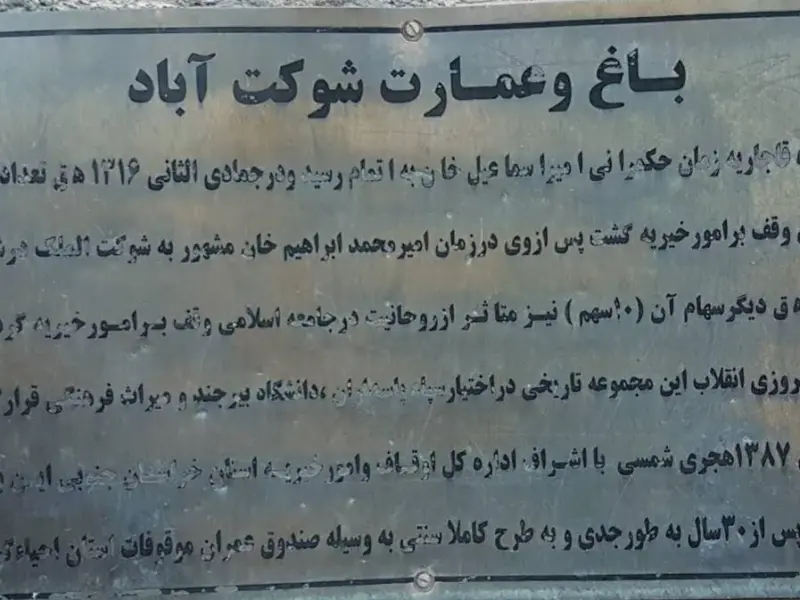 باغ وعمارت شوکت آباد
قاجاریه زمان حکمرانی امیراسماعیل خان به اتمام رسید ودرجمادی الثانی ۱۳۱۶ ه ق تعداد
وقف برامورخیریه گشت پس ازوی درزمان امیرمحمد ابراهیم خان مشهور به شوکت الملک در
ه ق دیگرسهام آن (۱۰سهم) نیز متاثر ازروحانیت درجامعه اسلامی وقف برامورخیریه
انقلاب این مجموعه تاریخی دراختیارسپاه پاسداران ،دانشگاه بیرجند و میراث فرهنگی قرار
۱۳۸۷هجری شمسی با اشراف اداره کل اوقاف وامور خیریه استان خراسان جنوبی این
پس از۳۰سال به طورجدی و به طرح کاملا سنتی به وسیله صندوق عمران موقوفات استان احیاء